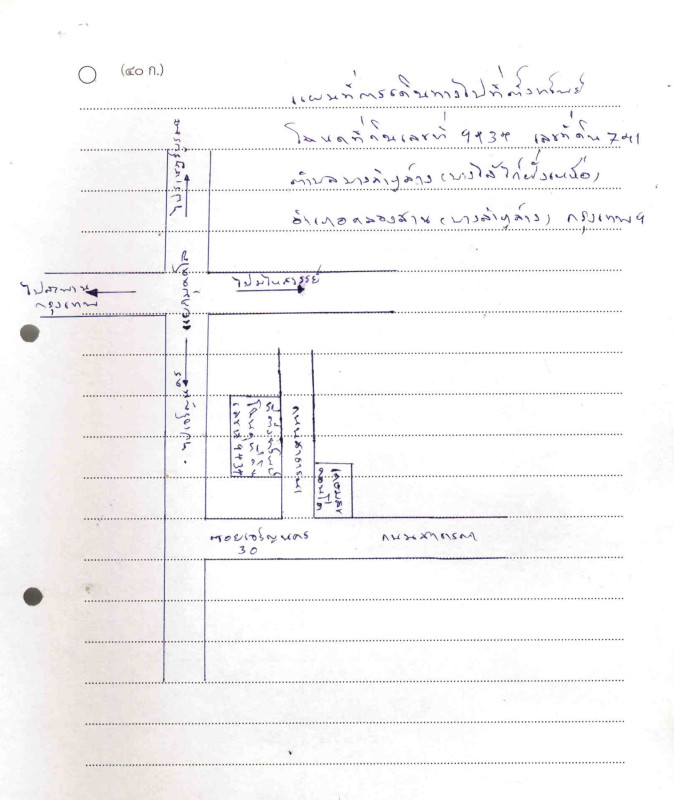 (๔๐ ก.)
แผนที่การเดินทางไปที่ตั้งทรัพย์
โฉนดที่ดินเลขที่ 9434 เลขที่ดิน 741
ตำบลบางลำภูล่าง (บางไส้ไก่ฝั่งเหนือ)
อำเภอคลองสาน (บางลำภูล่าง) กรุงเทพฯ
ไปราษฎร์บูรณะ
ไปสะพาน
กรุงเทพ
แยกมไหสวรรย์
ไปเจริญนคร
ที่ตั้งทรัพย์
โฉนดที่ดิน
เลขที่ 9434
ถนนสาธารณะ
คอนโด
ซอยเจริญนคร
30
ถนนสาธารณะ